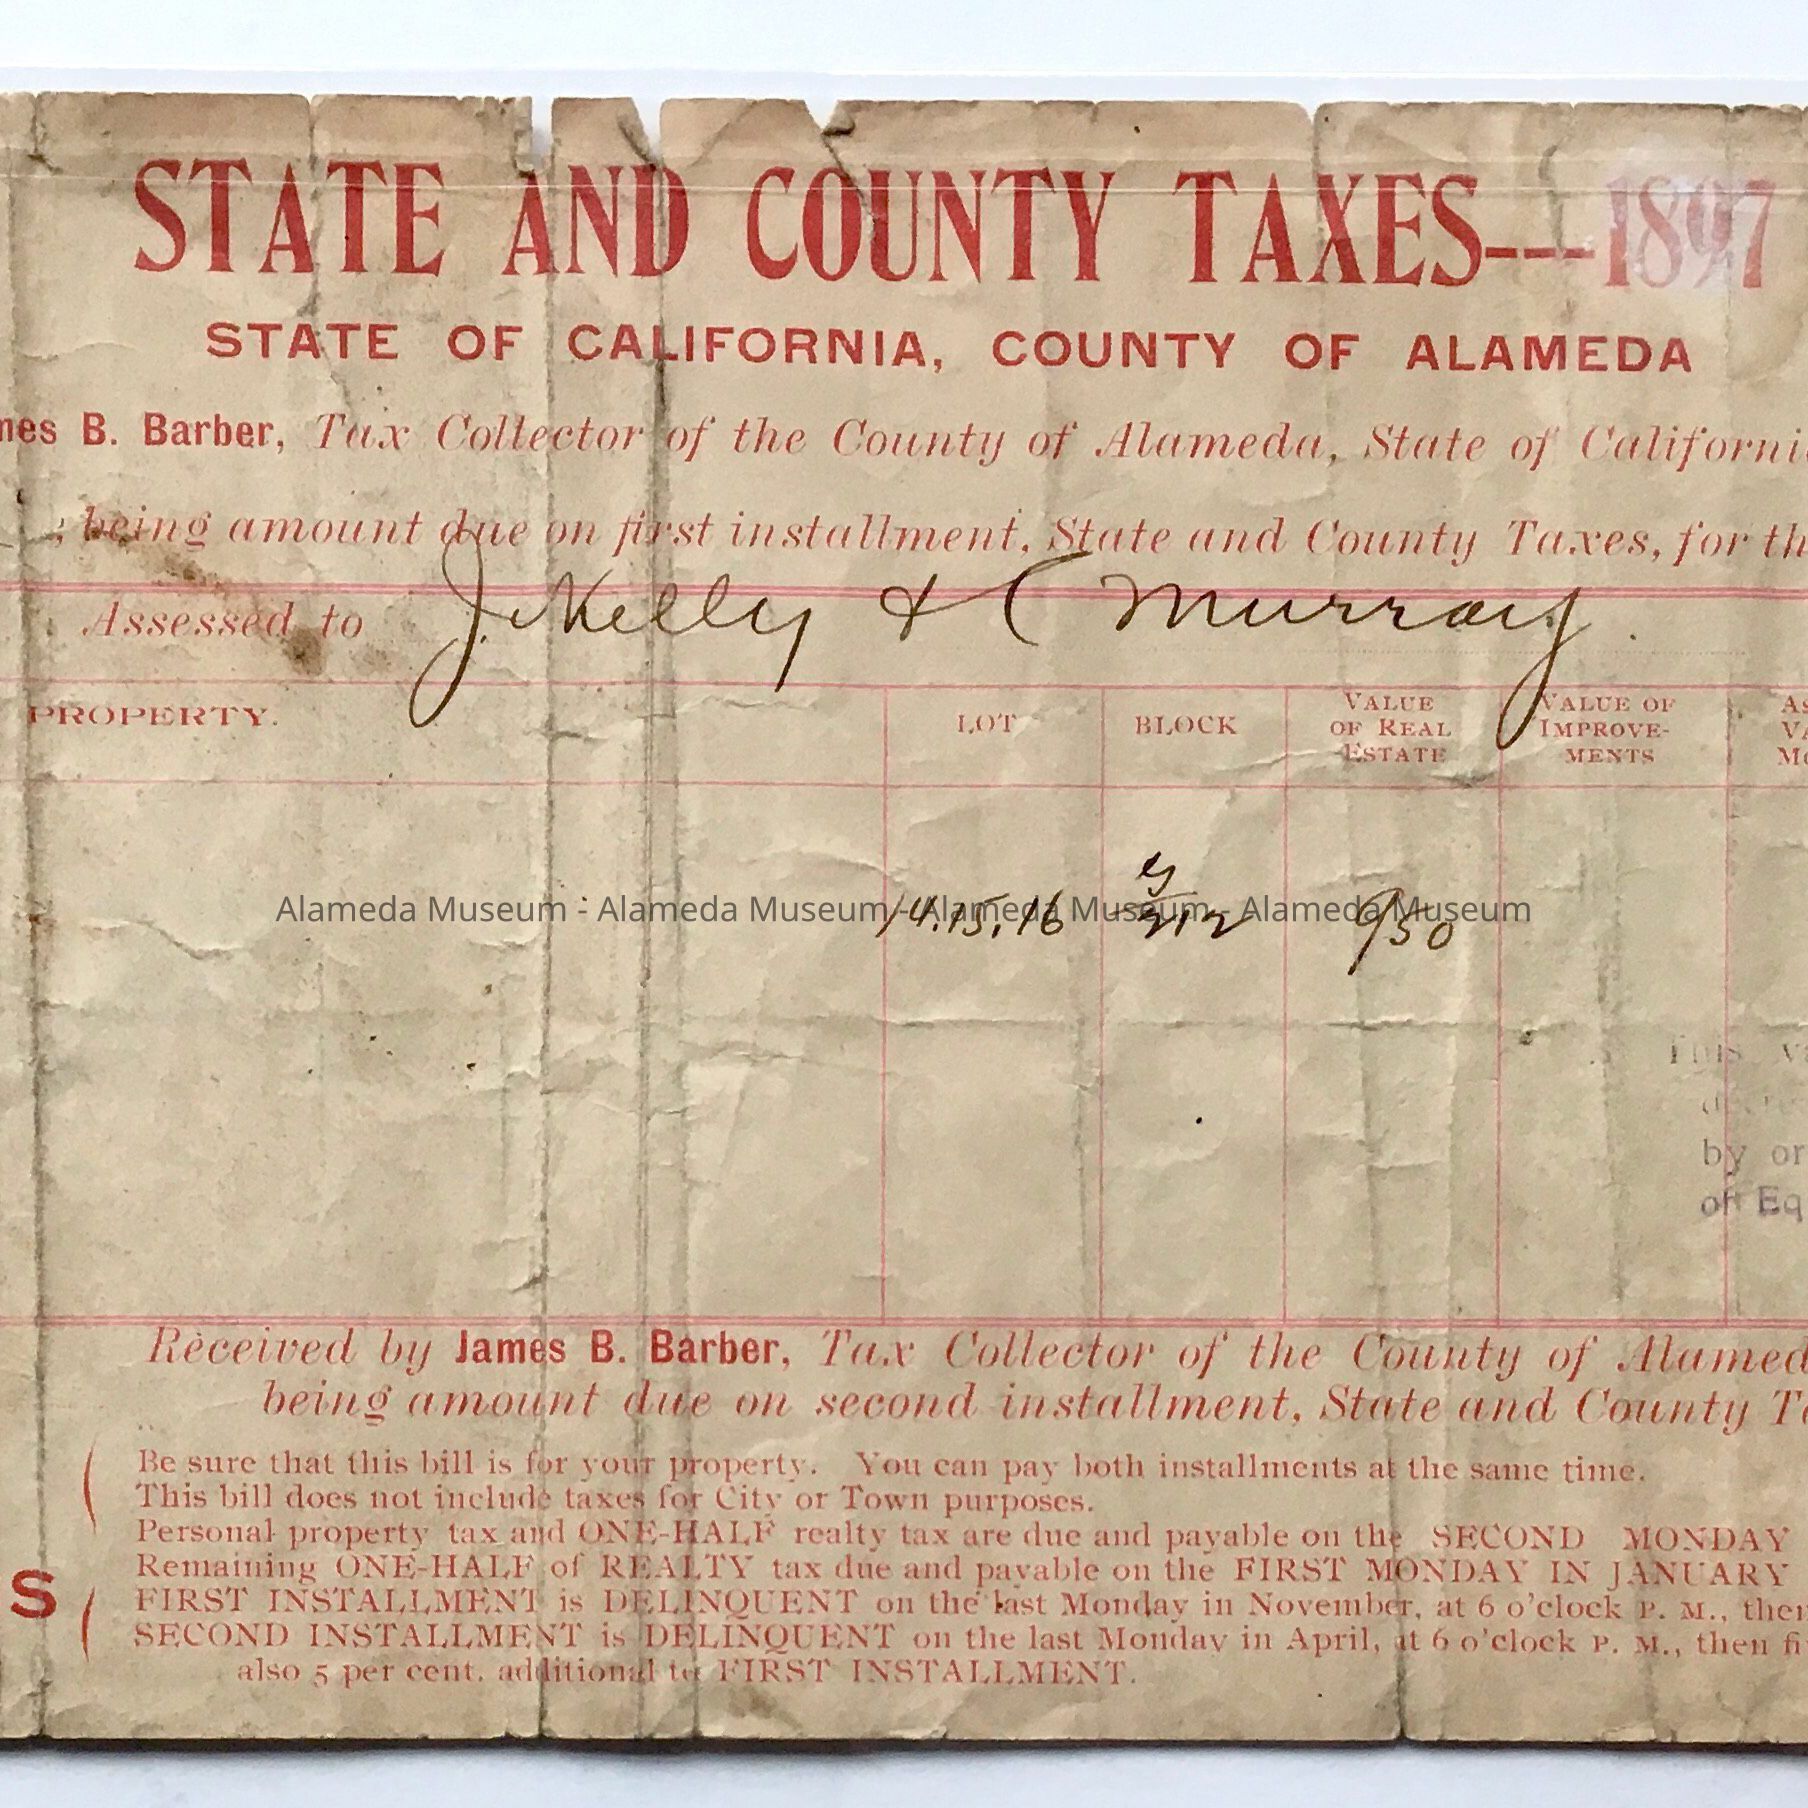 STATE AND COUNTY TAXES---1897
STATE OF CALIFORNIA, COUNTY OF ALAMEDA
mes B. Barber, Tax Collector of the County of Alameda, State of Californi
; being amount due on first installment, State and County Taxes, for th
Assessed to J. Kelly & C Murray.
PROPERTY.
LOT
BLOCK
VALUE OF REAL ESTATE
VALUE OF IMPROVE-MENTS
As
VA
Mo
14.15.16
212
950
Alameda Museum - Alameda Museum - Alameda Museum - Alameda Museum
This va
decre
by or
of Eq
Received by James B. Barber, Tax Collector of the County of Alamed
being amount due on second installment, State and County T
Be sure that this bill is for your property. You can pay both installments at the same time.
This bill does not include taxes for City or Town purposes.
Personal property tax and ONE-HALF realty tax are due and payable on the SECOND MONDAY
Remaining ONE-HALF of REALTY tax due and payable on the FIRST MONDAY IN JANUARY
S
FIRST INSTALLMENT is DELINQUENT on the last Monday in November, at 6 o'clock P. M., then
SECOND INSTALLMENT is DELINQUENT on the last Monday in April, at 6 o'clock P. M., then fi
also 5 per cent. additional to FIRST INSTALLMENT.